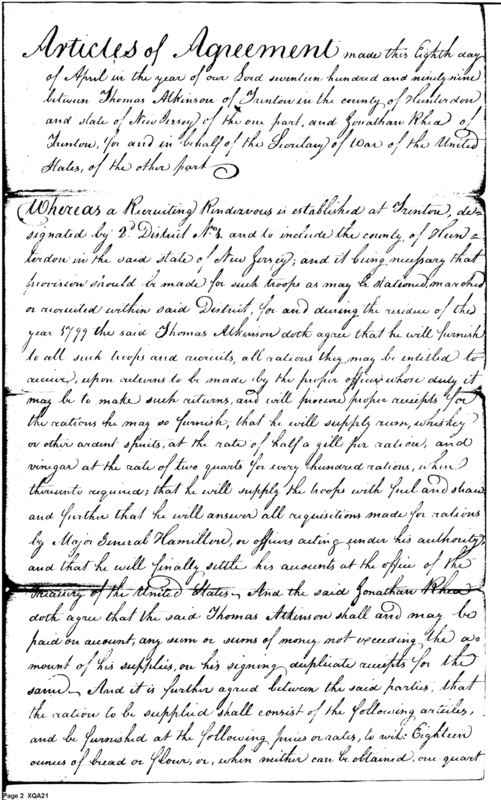 Articles of Agreement made this Eighth day
of April in the year of our Lord seventeen hundred and ninety nine
between Thomas Atkinson of Trenton in the county of Hunterdon
and state of New Jersey of the one part, and Jonathan Rhea of
Trenton, for and in behalf of the Secretary of War of the United
States, of the other part
Whereas a Recruiting Rendezvous is established at Trenton, de-
signated by 2d District No and to include the county of Hun-
terdon in the said state of New Jersey; and it being necessary that
provision should be made for such troops as may be stationed, marched
or recruited within said District, for and during the residue of the
year 1799 the said Thomas Atkinson doth agree that he will furnish
to all such troops and recruits, all rations they may be entitled to
receive, upon returns to be made by the proper officer whose duty it
may be to make such returns, and will procure proper receipts for
the rations he may so furnish, that he will supply rum, whiskey
or other ardent spirits, at the rate of half a gill per ration, and
vinegar at the rate of two quarts for every hundred rations, when
thereunto required; that he will supply the troops with fuel and straw
and further that he will answer all requisitions made for rations
by Major General Hamilton, or officers acting under his authority
and that he will finally settle his accounts at the office of the
Treasury of the United States. And the said Jonathan Rhea
doth agree that the said Thomas Atkinson shall and may be
paid on account, any sum or sums of money not exceeding the a-
mount of his supplies, on his signing duplicate receipts for the
same. And it is further agreed between the said parties, that
the ration to be supplied shall consist of the following articles,
and be furnished at the following prices or rates, to wit: Eighteen
ounces of bread or flour, or, when neither can be obtained, one quart
Page 2 XQA21